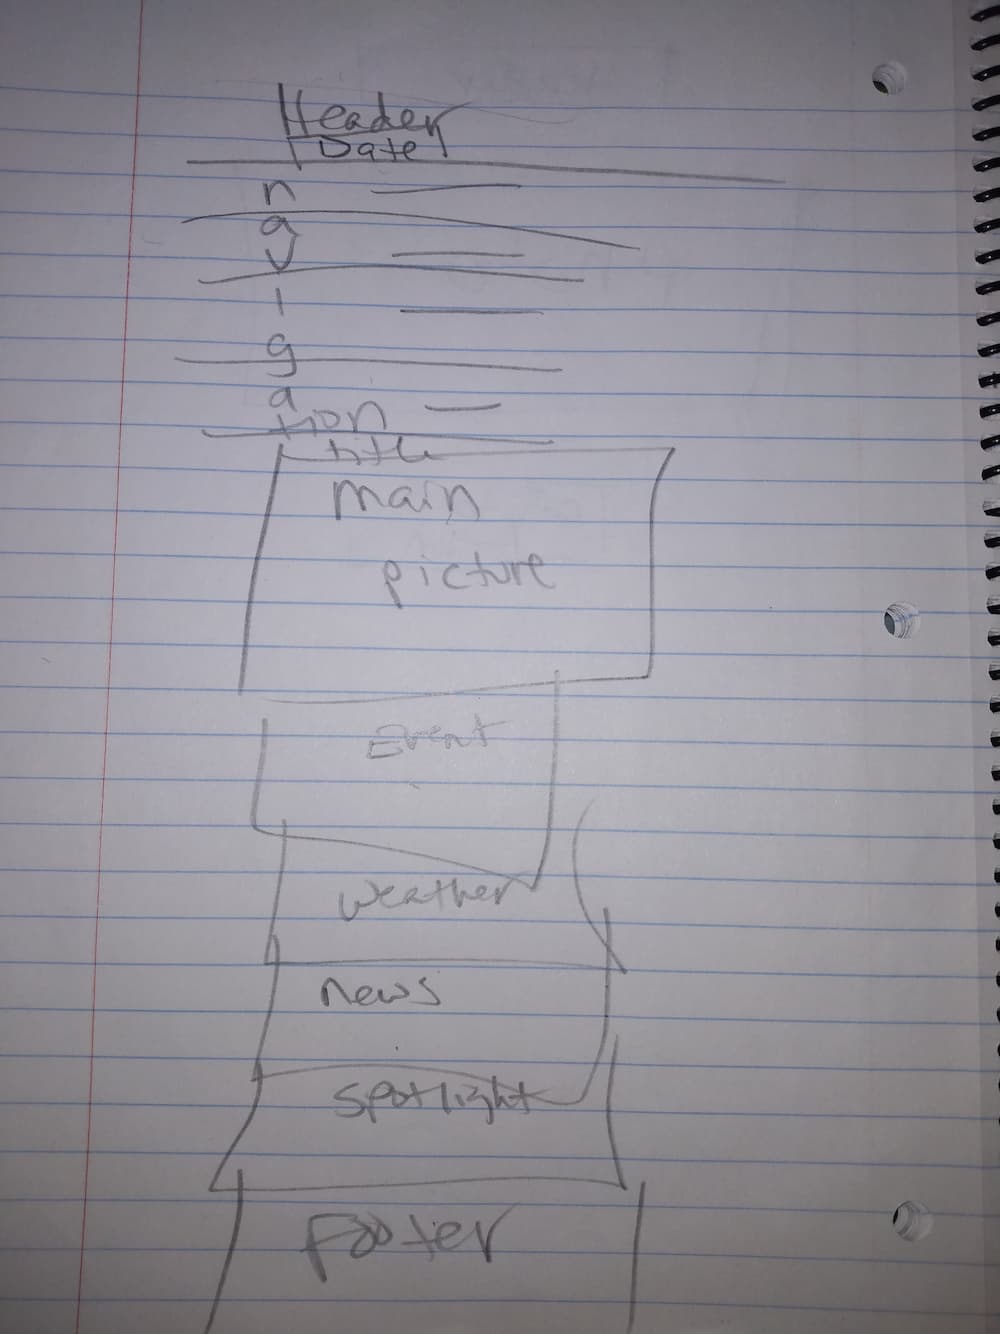 Header
Date
n
a
v
i
g
a
tion
title
main
picture
Event
weather
news
spotlight
Footer